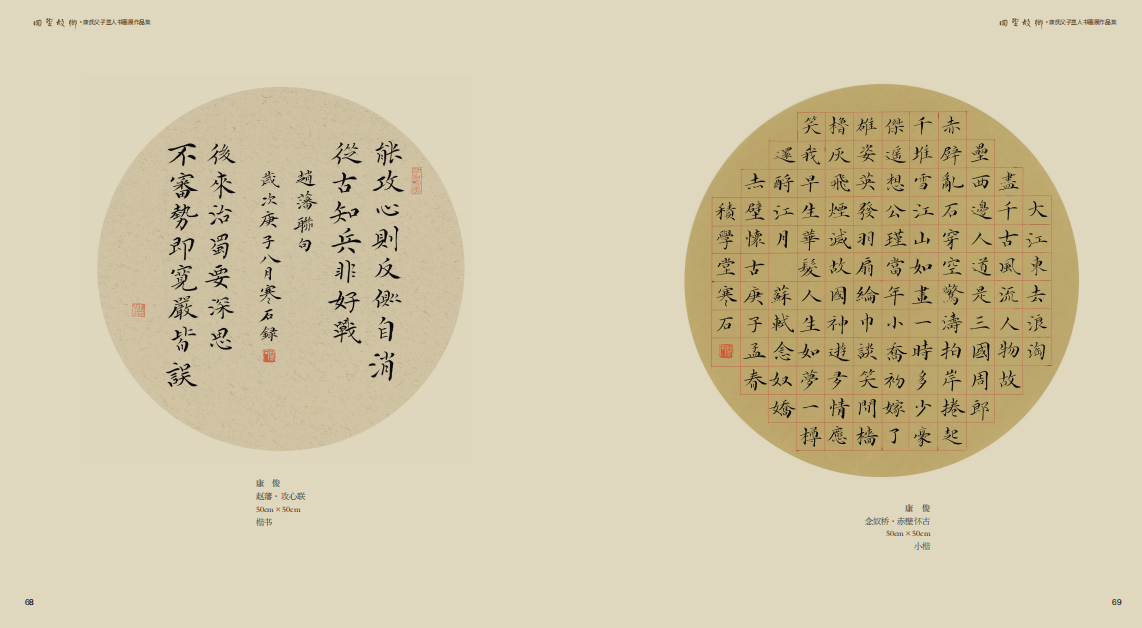 回望故鄉·康氏父子三人书画展作品集
能攻心則反側自消
從古知兵非好戰
趙藩聯句
歲次庚子八月寒石録
後來治蜀要深思
不審勢即寬嚴皆誤
康 俊
赵藩·攻心联
50cm×50cm
楷书
68
回望故鄉·康氏父子三人书画展作品集
大江東去浪淘
盡千古風流人物故
壘西邊人道是三國周郎
赤壁亂石穿空驚濤拍岸捲起
千堆雪江山如畫一時多少豪
傑遥想公瑾當年小喬初嫁了
雄姿英發羽扇綸巾談笑間檣
櫓灰飛煙滅故國神遊多情應
笑我早生華髮人生如夢一樽
還酹江月 蘇軾念奴嬌
赤壁懷古庚子孟春
積學堂寒石
康 俊
念奴桥·赤壁怀古
50cm×50cm
小楷
69